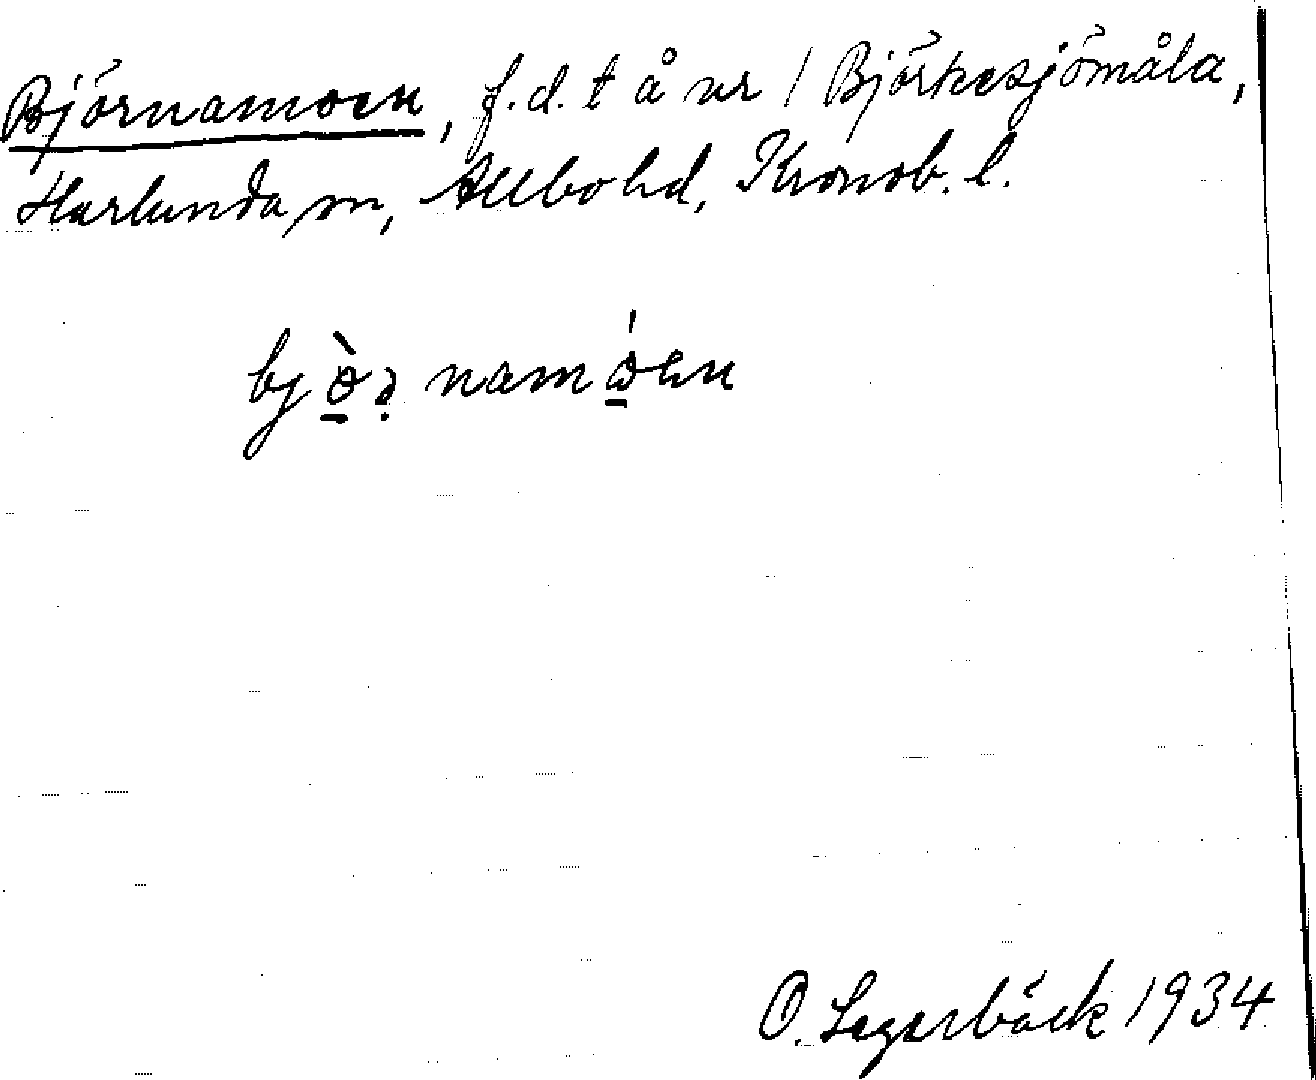 Björnamoen, f.d. t å nr 1 Björkesjömåla,
Härlunda sn, Allbo hd, Kronob. l.
bjò̱ꝛ̣ namó̱en
O. Lagerbäck 1934